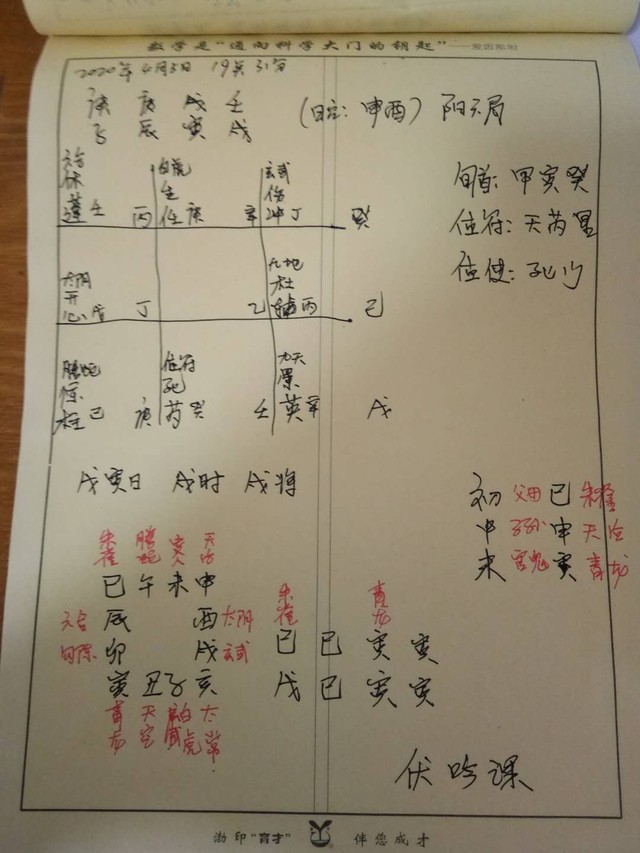 数学是“通向科学大门的钥匙”
2020年4月3日 19点31分
庚 庚 戊 壬
子 辰 寅 戌
(日空: 申酉) 阳六局
六合 白虎 玄武
休 生 伤
蓬 壬 丙 任 庚 辛 冲 丁 癸
太阴 九地
开 杜
心 丁 乙 辅 丙 己
螣蛇 值符 九天
惊 死 景
柱 己 庚 芮 癸 壬 英 辛 戊
旬首: 甲寅癸
值符: 天芮星
值使: 死门
戊寅日 戌时 戌将
初 父母 巳 朱雀
中 子孙 申 天后
末 官鬼 寅 青龙
朱雀 螣蛇 贵人 天后
巳 午 未 申
六合 辰 酉 太阴
勾陈 卯 戌 玄武
寅 丑 子 亥
青龙 天空 白虎 太常
朱雀 青龙
巳 巳 寅 寅
戊 巳 寅 寅
伏吟课
渤印“育才” 伴您成才